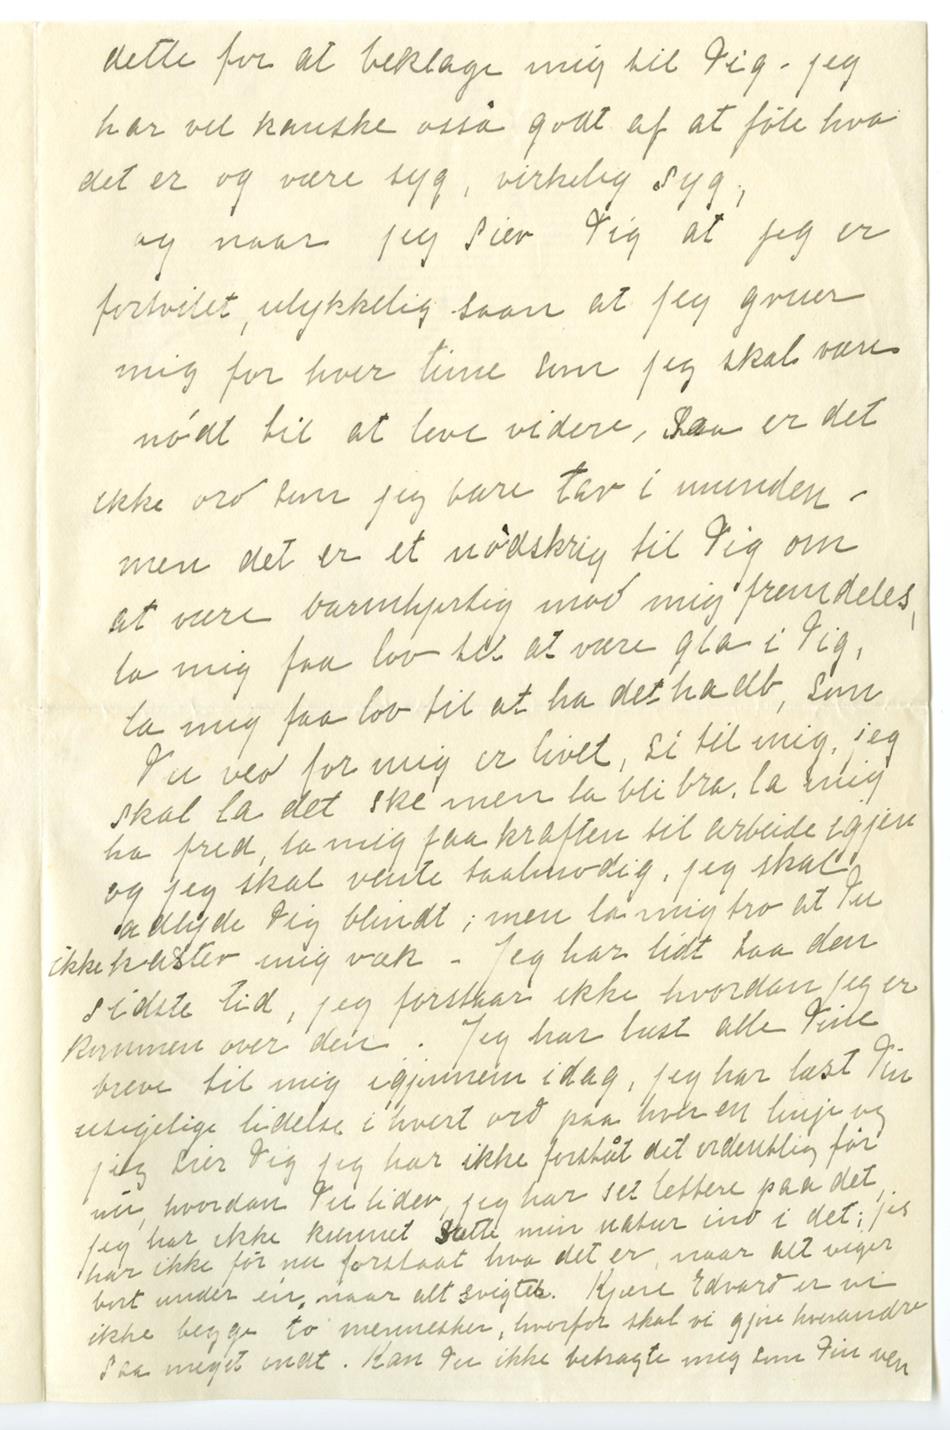 dette for at beklage mig til Dig - jeg
har vel kanske også godt af at føle hva
det er og være syg, virkelig syg,
og naar jeg sier Dig at jeg er
fortvilet, ulykkelig saan at jeg gruer
mig for hver time som jeg skal være
nødt til at leve videre, saa er det
ikke ord som jeg bare tar i munden -
men det er et nødskrig til Dig om
at være barmhjertig mod mig fremdeles,
la mig faa lov til at være gla i Dig,
la mig faa lov til at ha det haab, som
Du ved for mig er livet, si til mig, jeg
skal la det ske men la bli bra, la mig
ha fred, la mig faa kraften til arbeide igjen
og jeg skal vente taalmodig, jeg skal
adlyde Dig blindt; men la mig tro at Du
ikke kaster mig væk - Jeg har lidt saa den
sidste tid, jeg forstaar ikke hvordan jeg er
kommen over den. Jeg har læst alle Dine
breve til mig igjennem idag, jeg har læst Din
usigelige lidelse i hvert ord paa hver en linje og
jeg sier Dig jeg har ikke forståt det ordentlig før
nu, hvordan Du lider, jeg har set lettere paa det,
jeg har ikke kunnet sætte min natur ind i det; jeg
har ikke før nu forstaat hva det er, naar alt viger
bort under én, naar alt svigter. Kjære Edvard er vi
ikke begge to mennesker, hvorfor skal vi gjøre hverandre
saa meget ondt. Kan Du ikke betragte mig som Din ven